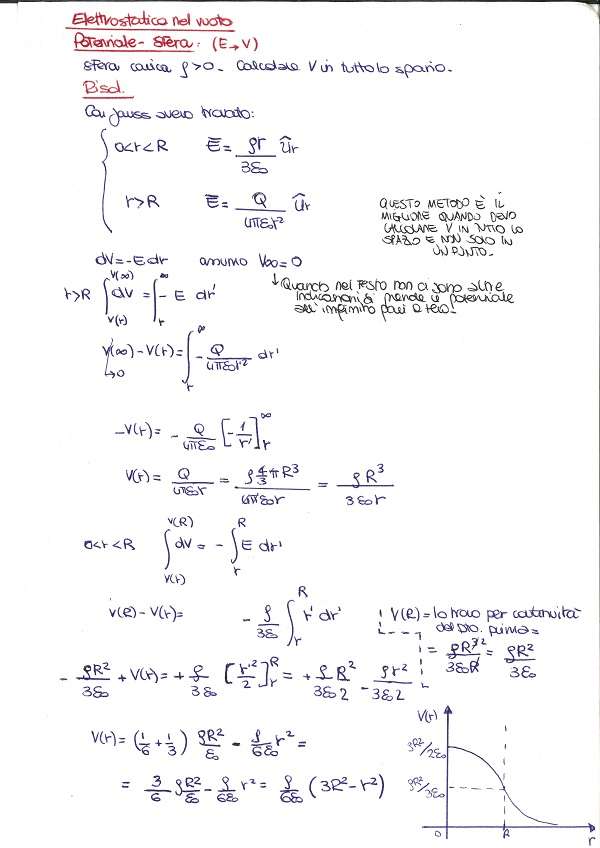 Elettrostatica nel vuoto
Potenziale - Sfera: (E→V)
Sfera carica ρ>0. Calcolare V in tutto lo spazio.
Risol.
Con Gauss avevo trovato:
0<r<R Ē = ρr/3ε₀ ûr
r>R Ē = Q/4πε₀r² ûr
QUESTO METODO È IL
MIGLIORE QUANDO DEVO
CALCOLARE V IN TUTTO LO
SPAZIO E NON SOLO IN
UN PUNTO.
dV=-Edr assumo V∞=0
↓ Quando nel testo non ci sono altre
indicazioni si prende il potenziale
all'infinito pari a zero.
r>R ∫_{V(r)}^{V(∞)} dV = ∫_r^∞ -E dr'
V(∞)-V(r) = ∫_r^∞ -Q/4πε₀r'² dr'
↳0
-V(r) = -Q/4πε₀ [-1/r']_r^∞
V(r) = Q/4πε₀r = ρ 4/3 πR³/4πε₀r = ρR³/3ε₀r
0<r<R ∫_{V(r)}^{V(R)} dV = -∫_r^R E dr'
V(R)-V(r) = -ρ/3ε₀ ∫_r^R r' dr'
V(R) = lo trovo per continuità
dal pto. prima =
= ρR³²/3ε₀R = ρR²/3ε₀
-ρR²/3ε₀ + V(r) = +ρ/3ε₀ [r'²/2]_r^R = +ρR²/3ε₀2 - ρr²/3ε₀2
V(r) = (1/6 + 1/3) ρR²/ε₀ - ρ/6ε₀ r² =
= 3/6 ρR²/ε₀ - ρ/6ε₀ r² = ρ/6ε₀ (3R²-r²)
V(r)
ρR²/2ε₀
ρR²/3ε₀
0 R r